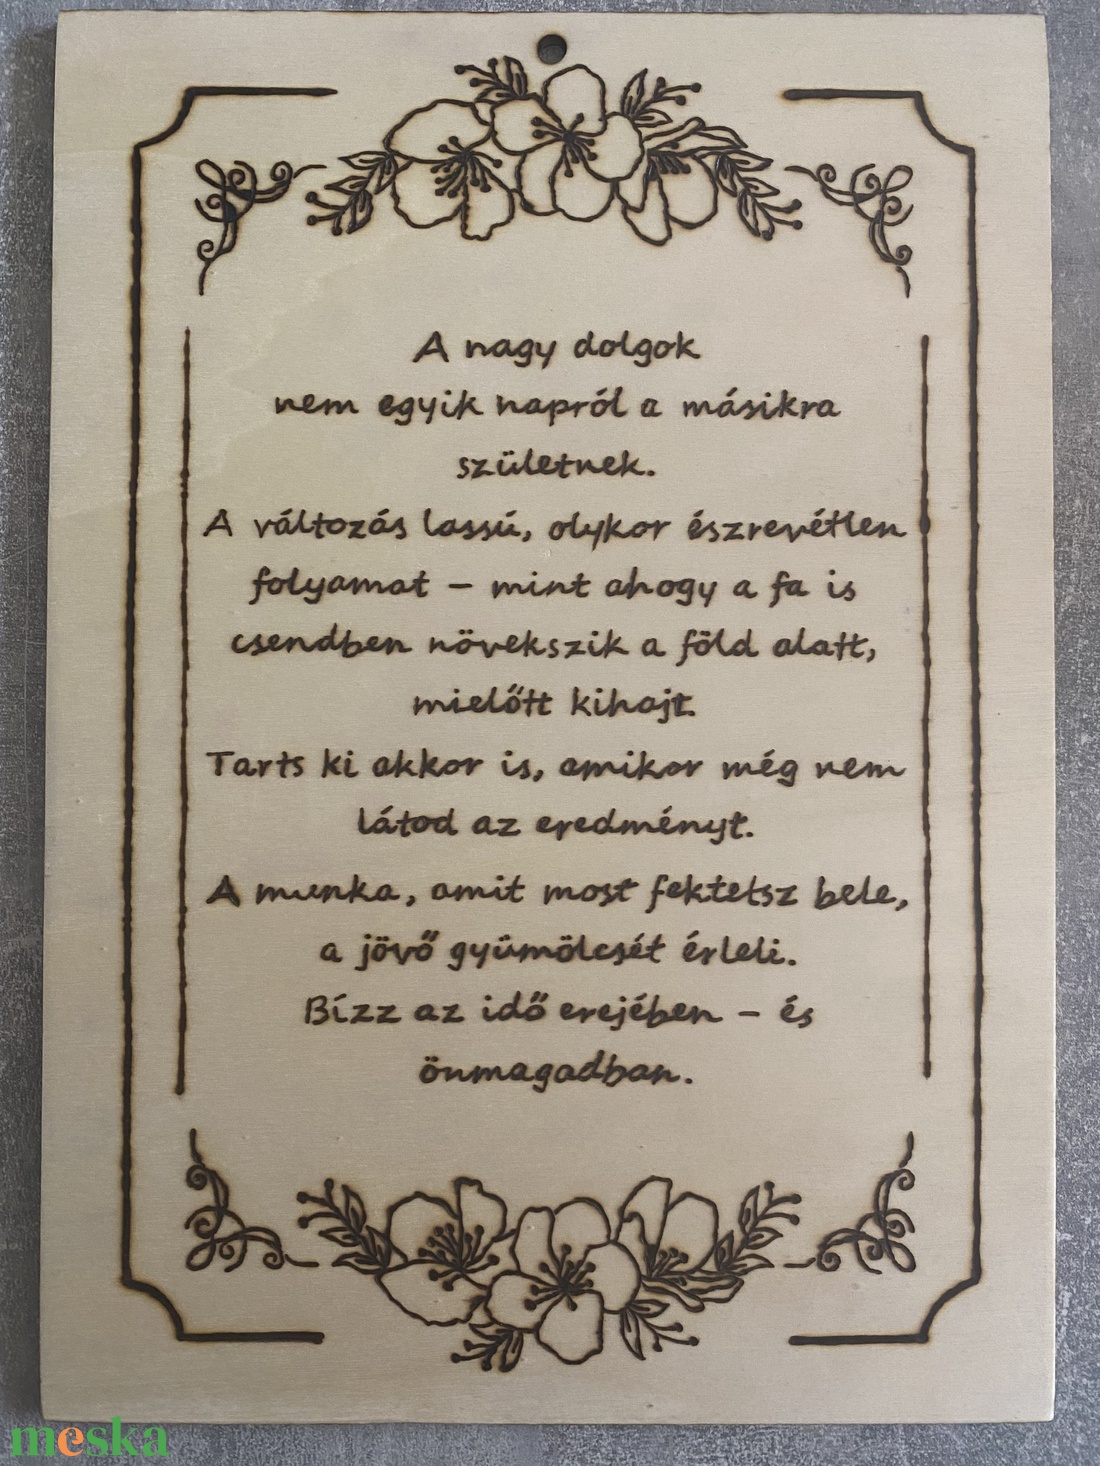 A nagy dolgok
nem egyik napról a másikra
születnek.
A változás lassú, olykor észrevétlen
folyamat – mint ahogy a fa is
csendben növekszik a föld alatt,
mielőtt kihajt.
Tarts ki akkor is, amikor még nem
látod az eredményt.
A munka, amit most fektetsz bele,
a jövő gyümölcsét érleli.
Bízz az idő erejében – és
önmagadban.
meska